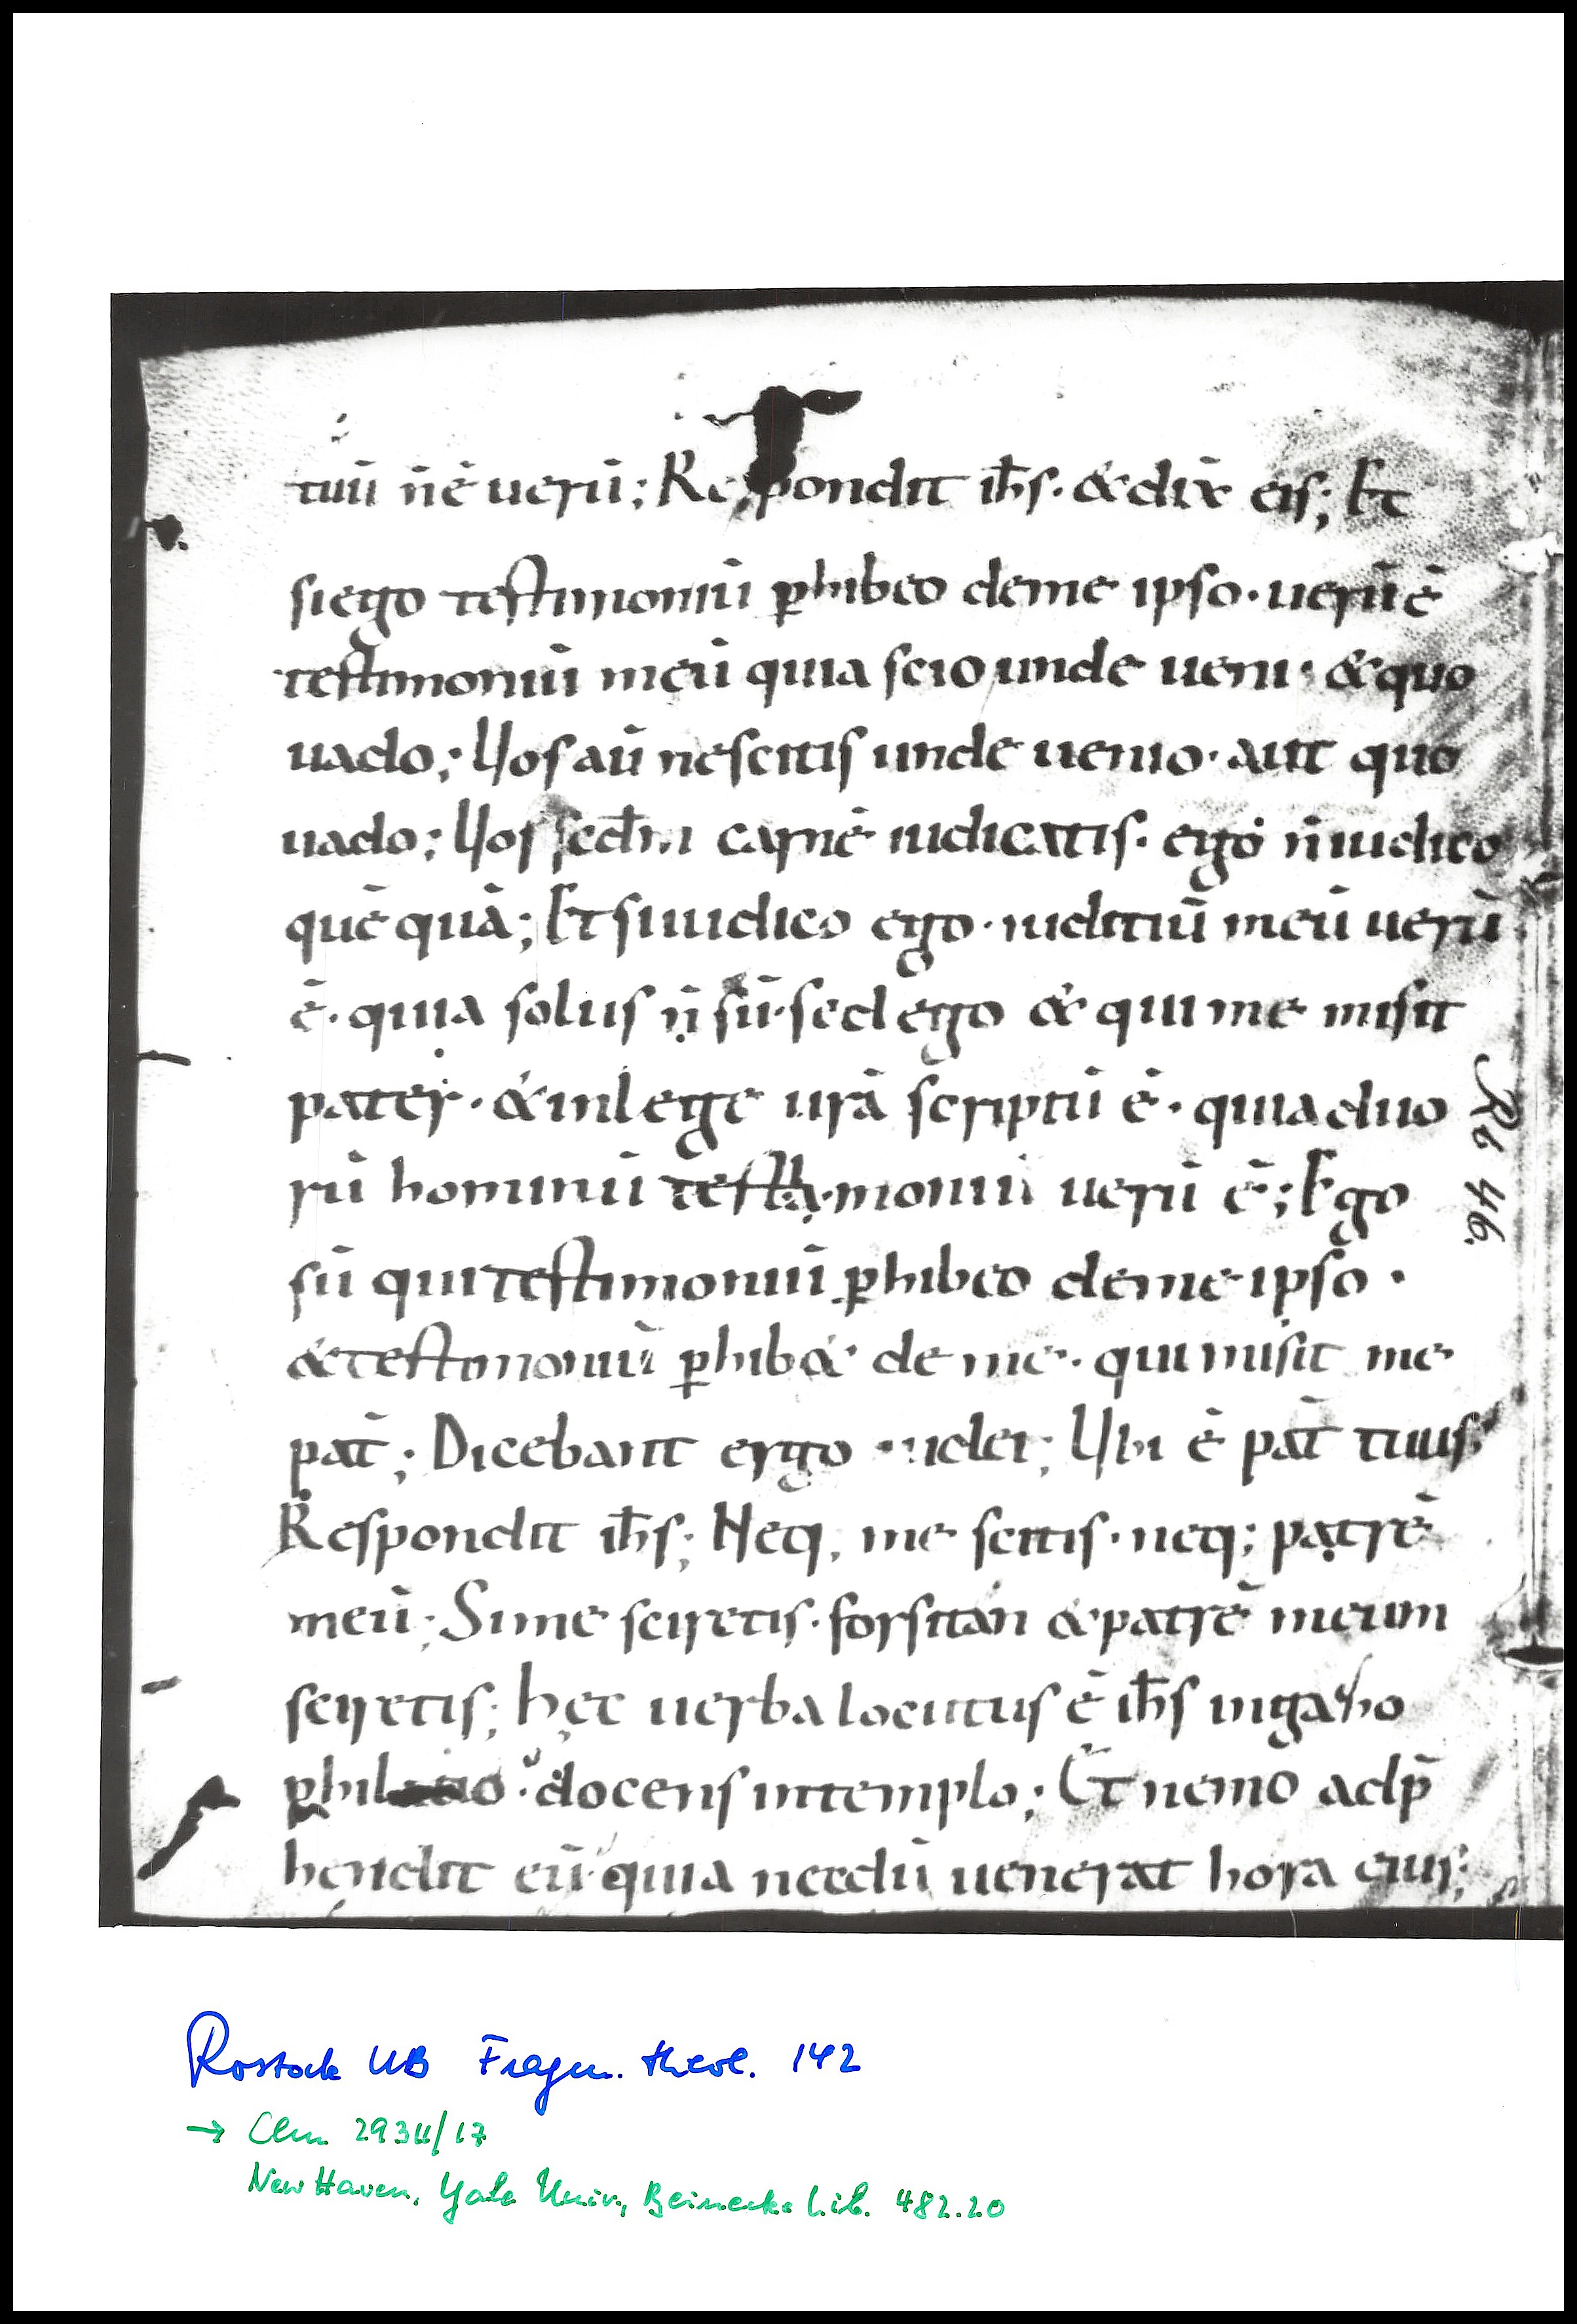 tuū n̄ ē uerū; Respondit ih̄s· & dix̄ eis; Et
si ego testimoniū ꝑhibeo de me ipso· uerū ē
testimoniū meū quia scio unde ueni· & quo
uado; Uos aū nescitis unde uenio· aut quo
uado; Uos secd̄m carnē iudicatis· ego n̄ iudico
quē quā; Et si iudico ego· iuditiū meū uerū
ē· quia solus n̄ sū· sed ego & qui me misit
pater· & in lege ur̄a scriptū ē· quia duo
rū hominū testimoniū uerū ē; Ego
sū qui testimoniū ꝑhibeo de me ipso·
& testimoniū ꝑhib& de me· qui misit me
pat̄; Dicebant ergo iudei; Ubi ē pat̄ tuus;
Respondit ih̄s; Neq; me scitis· neq; patrē
meū; Si me sciretis· forsitan & patrē meum
sciretis; hęc uerba locutus ē ih̄s in
docens in templo; Et nemo adp̄
hendit eū· quia necdū uenerat hora eius;
R6 46.
Rostock UB Fragm. theol. 142
→ Clm 2931
New Haven, Yale Univ., Beinecke Lib. 482.20